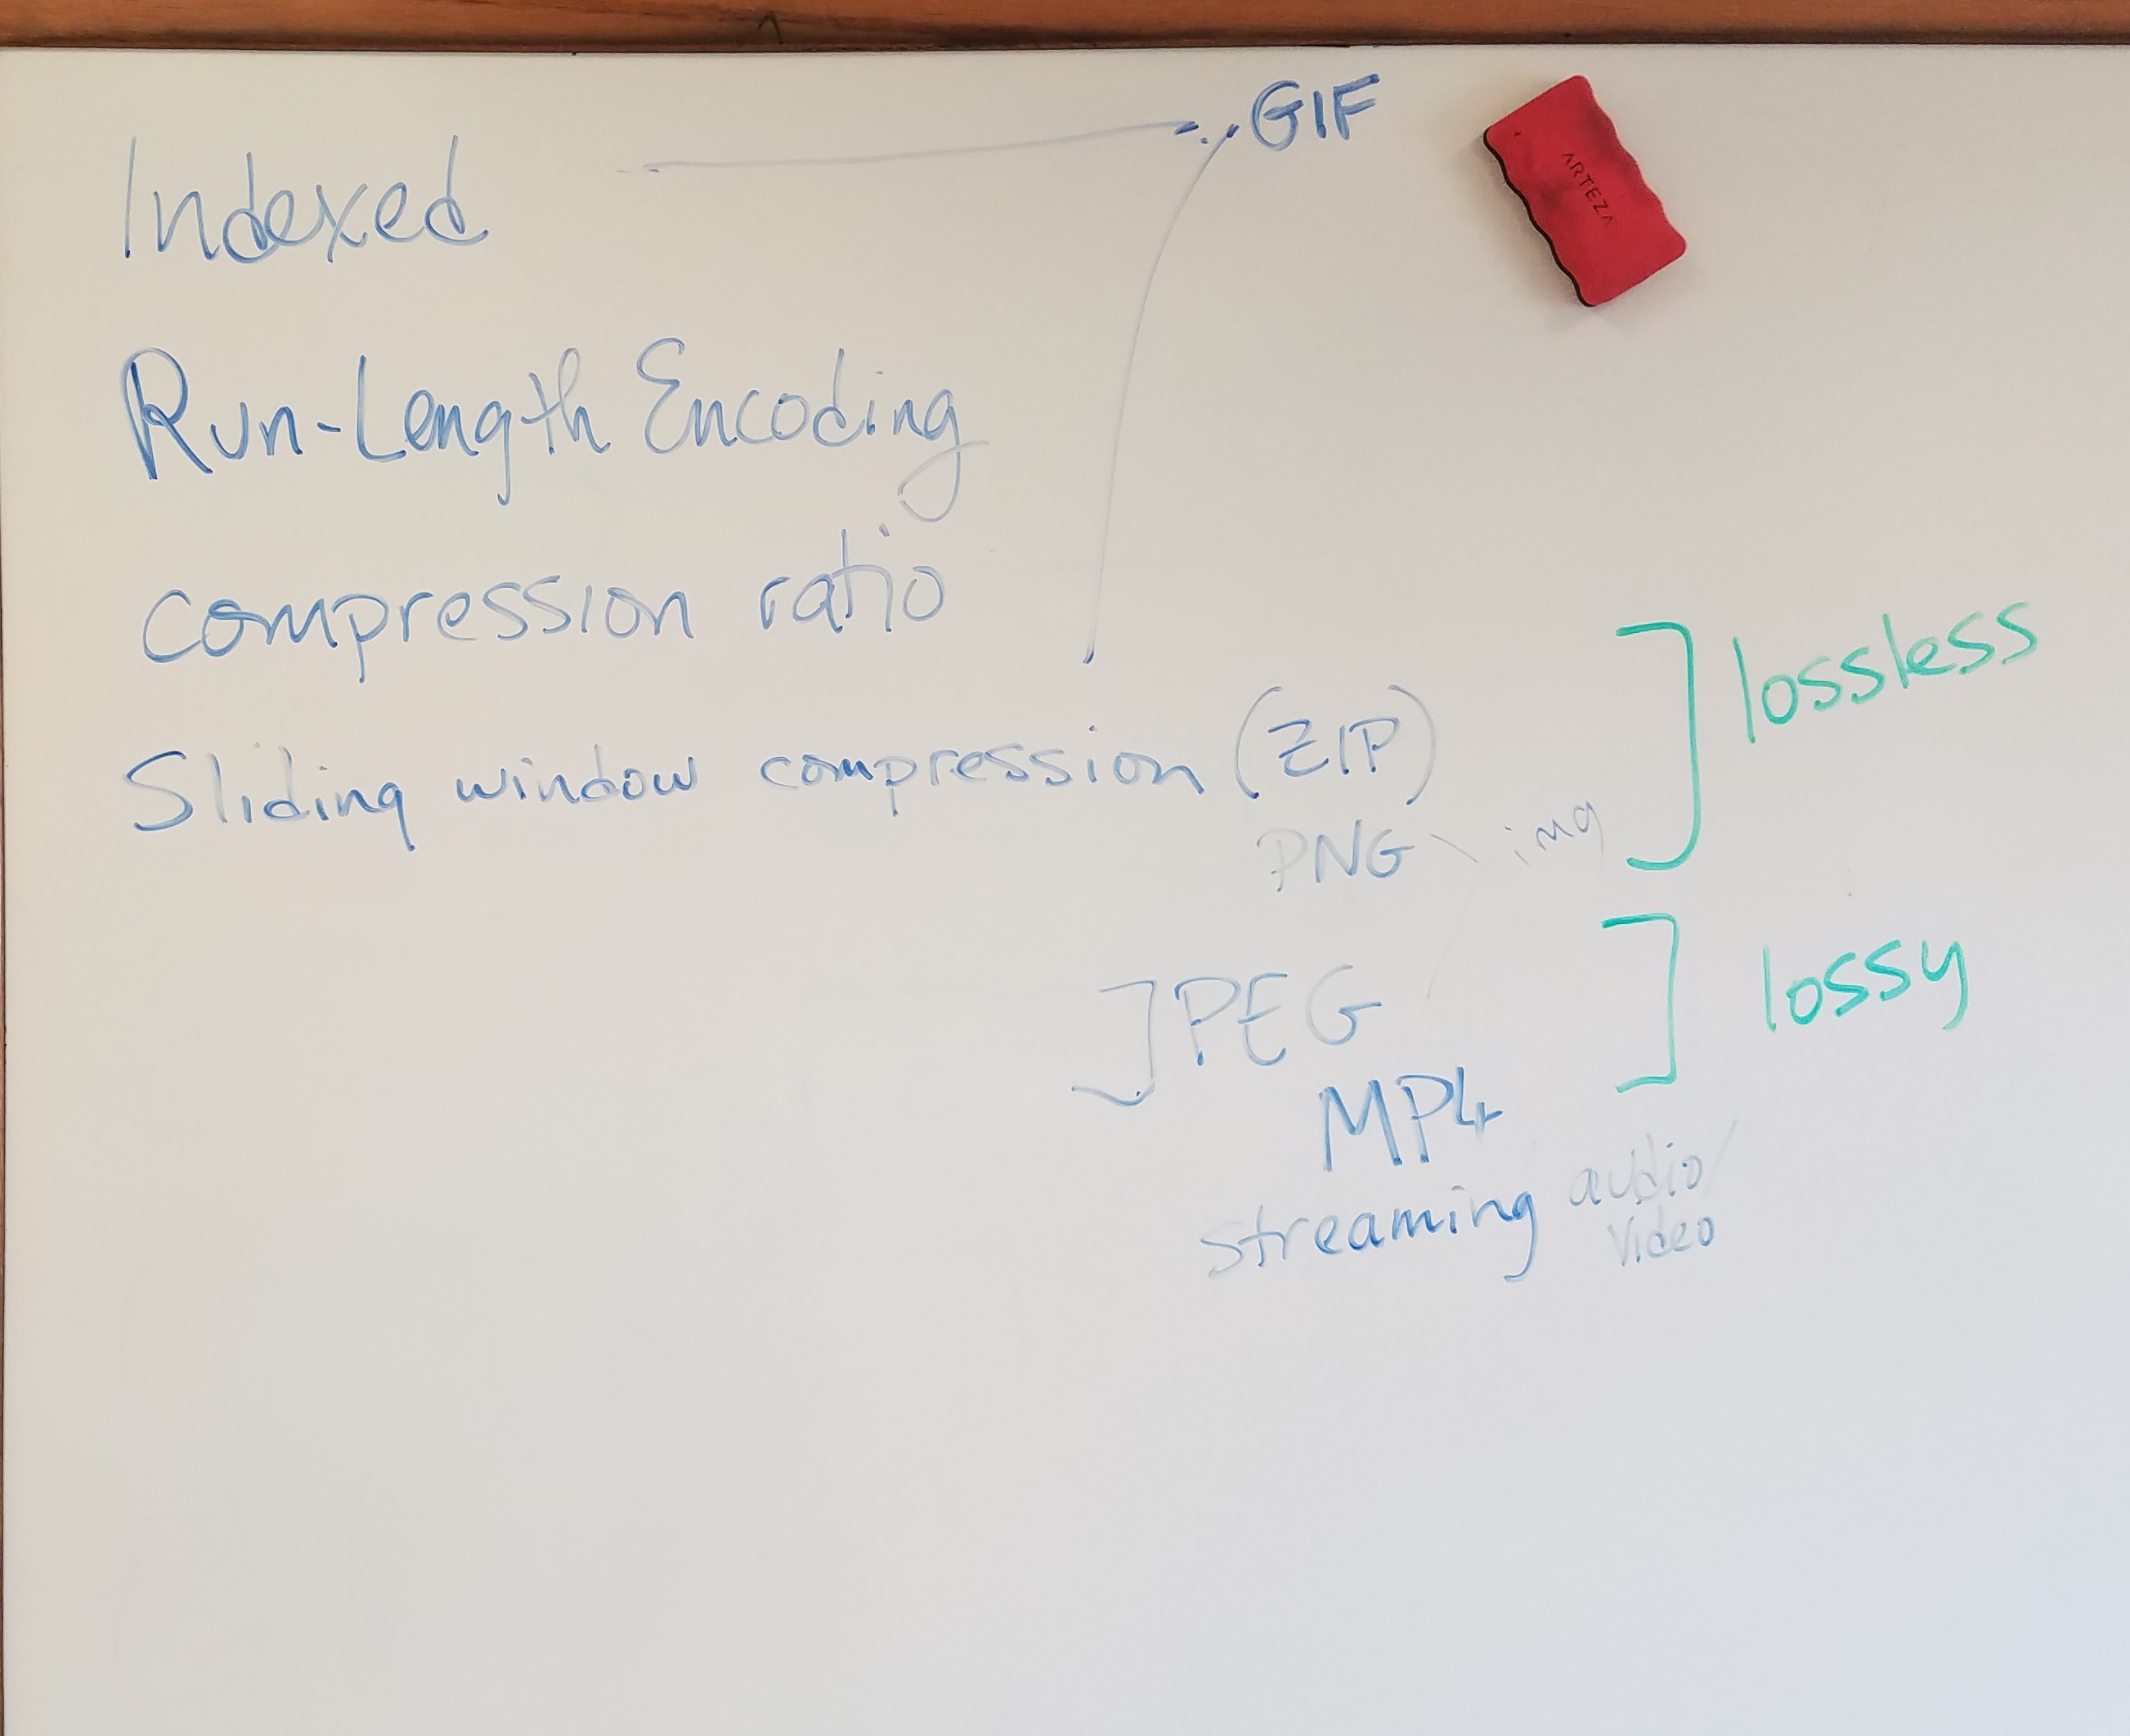 GIF
ARTEZA
Indexed
Run-Length Encoding
compression ratio
lossless
Sliding window compression (ZIP)
PNG img
JPEG
lossy
MP4
streaming audio/
video